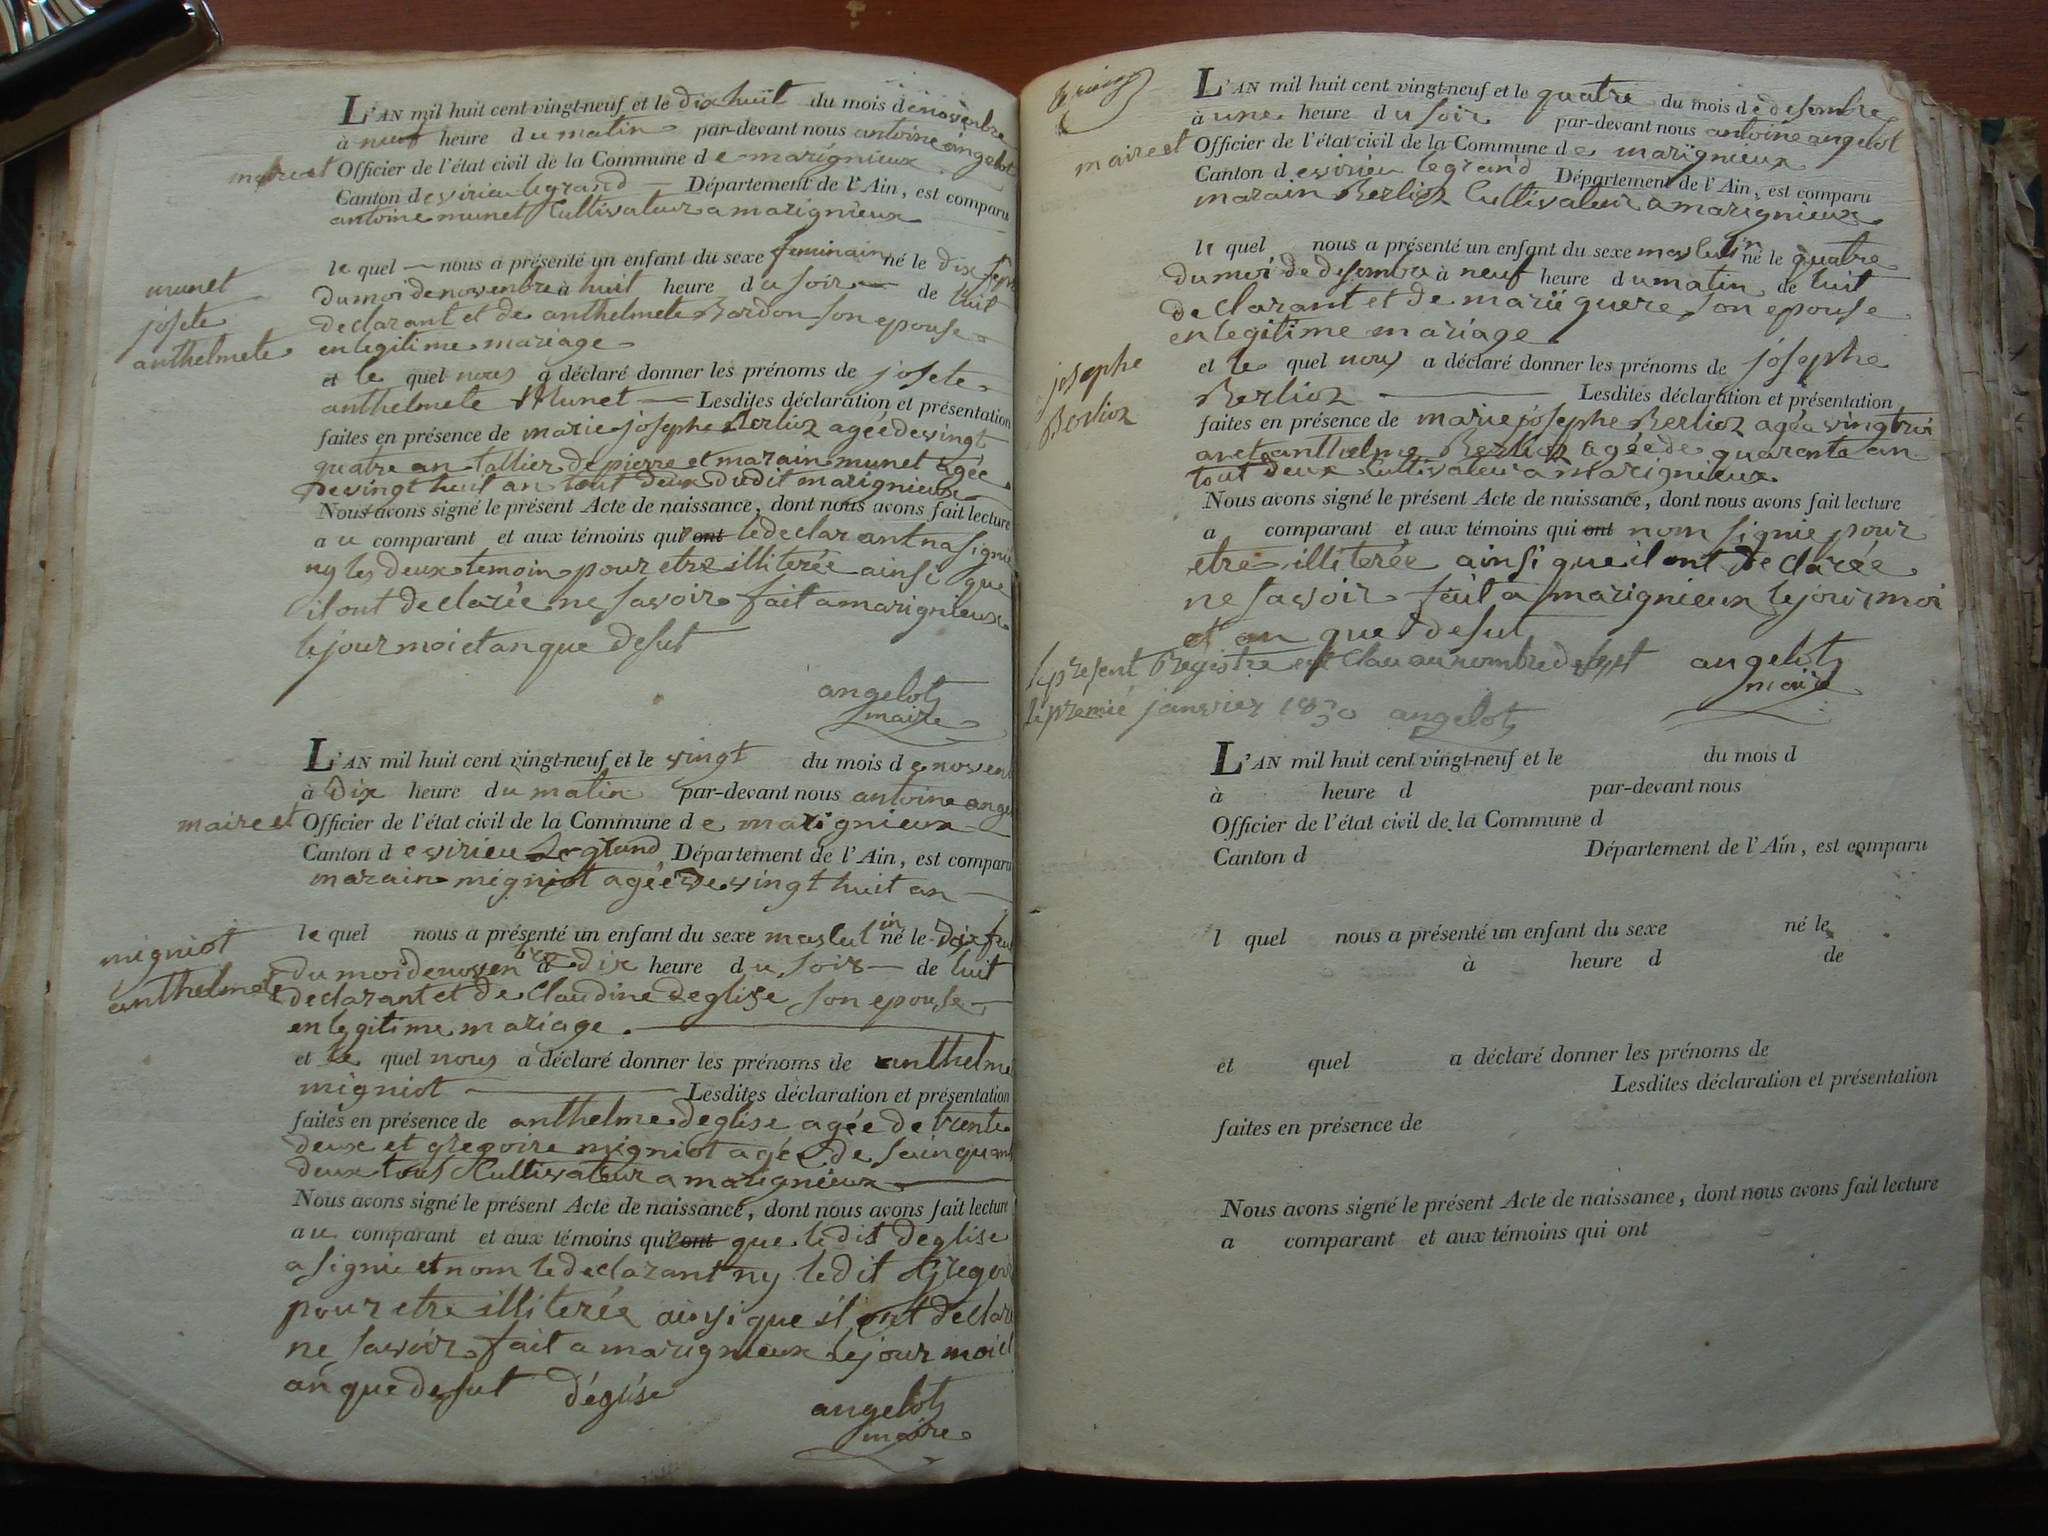 L'AN mil huit cent vingt-neuf et le dix huit du mois de novenbre
à neuf heure du matin par-devant nous antoine angelot
maire et Officier de l'état civil de la Commune de marignieux
Canton de virieu le grand Département de l'Ain, est comparu
antoine munet Cultivateur a marignieux
le quel nous a présenté un enfant du sexe feminain né le dix sept
du moi de novenbre à huit heure du soir de luit
declarant et de anthelmete Bordon son epouse
en legitime mariage
munet
josete
anthelmete
et le quel nous a déclaré donner les prénoms de josete
anthelmete Munet Lesdites déclaration et présentation
faites en présence de marie josephe Berlioz agée de vingt
quatre an tallier de pierre et marain munet agée
de vingt huit an tout deux dudit marignieux
Nous avons signé le présent Acte de naissance, dont nous avons fait lecture
au comparant et aux témoins qui ont le declarant na signié
ny les deux temoin pour etre illiterée ainsi que
il ont declarée ne savoir fait a marignieux
le jour moi et an que desut
angelot
maire
L'AN mil huit cent vingt-neuf et le vingt du mois de noven
à dix heure du matin par-devant nous antoine ange
maire et Officier de l'état civil de la Commune de marignieux
Canton de virieu Le grand Département de l'Ain, est comparu
marain migniot agée de vingt huit an
le quel nous a présenté un enfant du sexe maslulin né le dix
du moi de novenbre à dix heure du soir de luit
declarant et de Claudine deglise son epouse
en legitime mariage.
migniot
anthelmete
et le quel nous a déclaré donner les prénoms de anthelme
migniot Lesdites déclaration et présentation
faites en présence de anthelme deglise agée de trente
deux et gregoire migniot agée de sainquant
deux tous Cultivateur a marignieux
Nous avons signé le présent Acte de naissance, dont nous avons fait lecture
au comparant et aux témoins qui ont que ledit deglise
a signie et nom le declarant ny ledit Gregoir
pour etre illiterée ainsi que il ont declare
ne savoir fait a marignieux le jour moi et
an que desut d'églisе
angelot
maire
L'AN mil huit cent vingt-neuf et le quatre du mois de desembre
à une heure du soir par-devant nous antoine angelot
maire et Officier de l'état civil de la Commune de marignieux
Canton de virieu le grand Département de l'Ain, est comparu
marain Berlioz Cultivateur a marignieux
le quel nous a présenté un enfant du sexe maslulin né le quatre
du moi de desembre à neuf heure du matin de luit
declarant et de marie guere son epouse
en legitime mariage
josephe
Berlioz
et le quel nous a déclaré donner les prénoms de josephe
Berlioz Lesdites déclaration et présentation
faites en présence de marie josephe Berlioz agée vingt
an et anthelme Berlioz agée de quarente an
tout deux Cultivateur a marignieux
Nous avons signé le présent Acte de naissance, dont nous avons fait lecture
a comparant et aux témoins qui ont nom signie pour
etre illiterée ainsi que il ont declarée
ne savoir fait a marignieux le jour moi
et an que desut
le present Registre est Clau au nombre de sept
le premié janvier 1830 angelot
angelot
maire
L'AN mil huit cent vingt-neuf et le du mois d
à heure d par-devant nous
Officier de l'état civil de la Commune d
Canton d Département de l'Ain, est comparu
l quel nous a présenté un enfant du sexe né le
à heure d de
et quel a déclaré donner les prénoms de
Lesdites déclaration et présentation
faites en présence de
Nous avons signé le présent Acte de naissance, dont nous avons fait lecture
a comparant et aux témoins qui ont